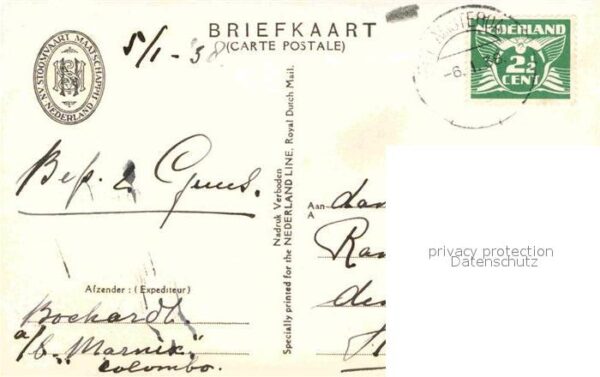 BRIEFKAART
(CARTE POSTALE)
5/1-'38
STOOMVAART MAATSCHAPPIJ NEDERLAND
NEDERLAND
2½
CENT
-6.1.
Bep. & Guus.
Nadruk Verboden
Specially printed for the NEDERLAND LINE, Royal Dutch Mail.
Aan
A
privacy protection
Datenschutz
Afzender : (Expediteur)
Bochardt
a/b. "Marnix."
Colombo.